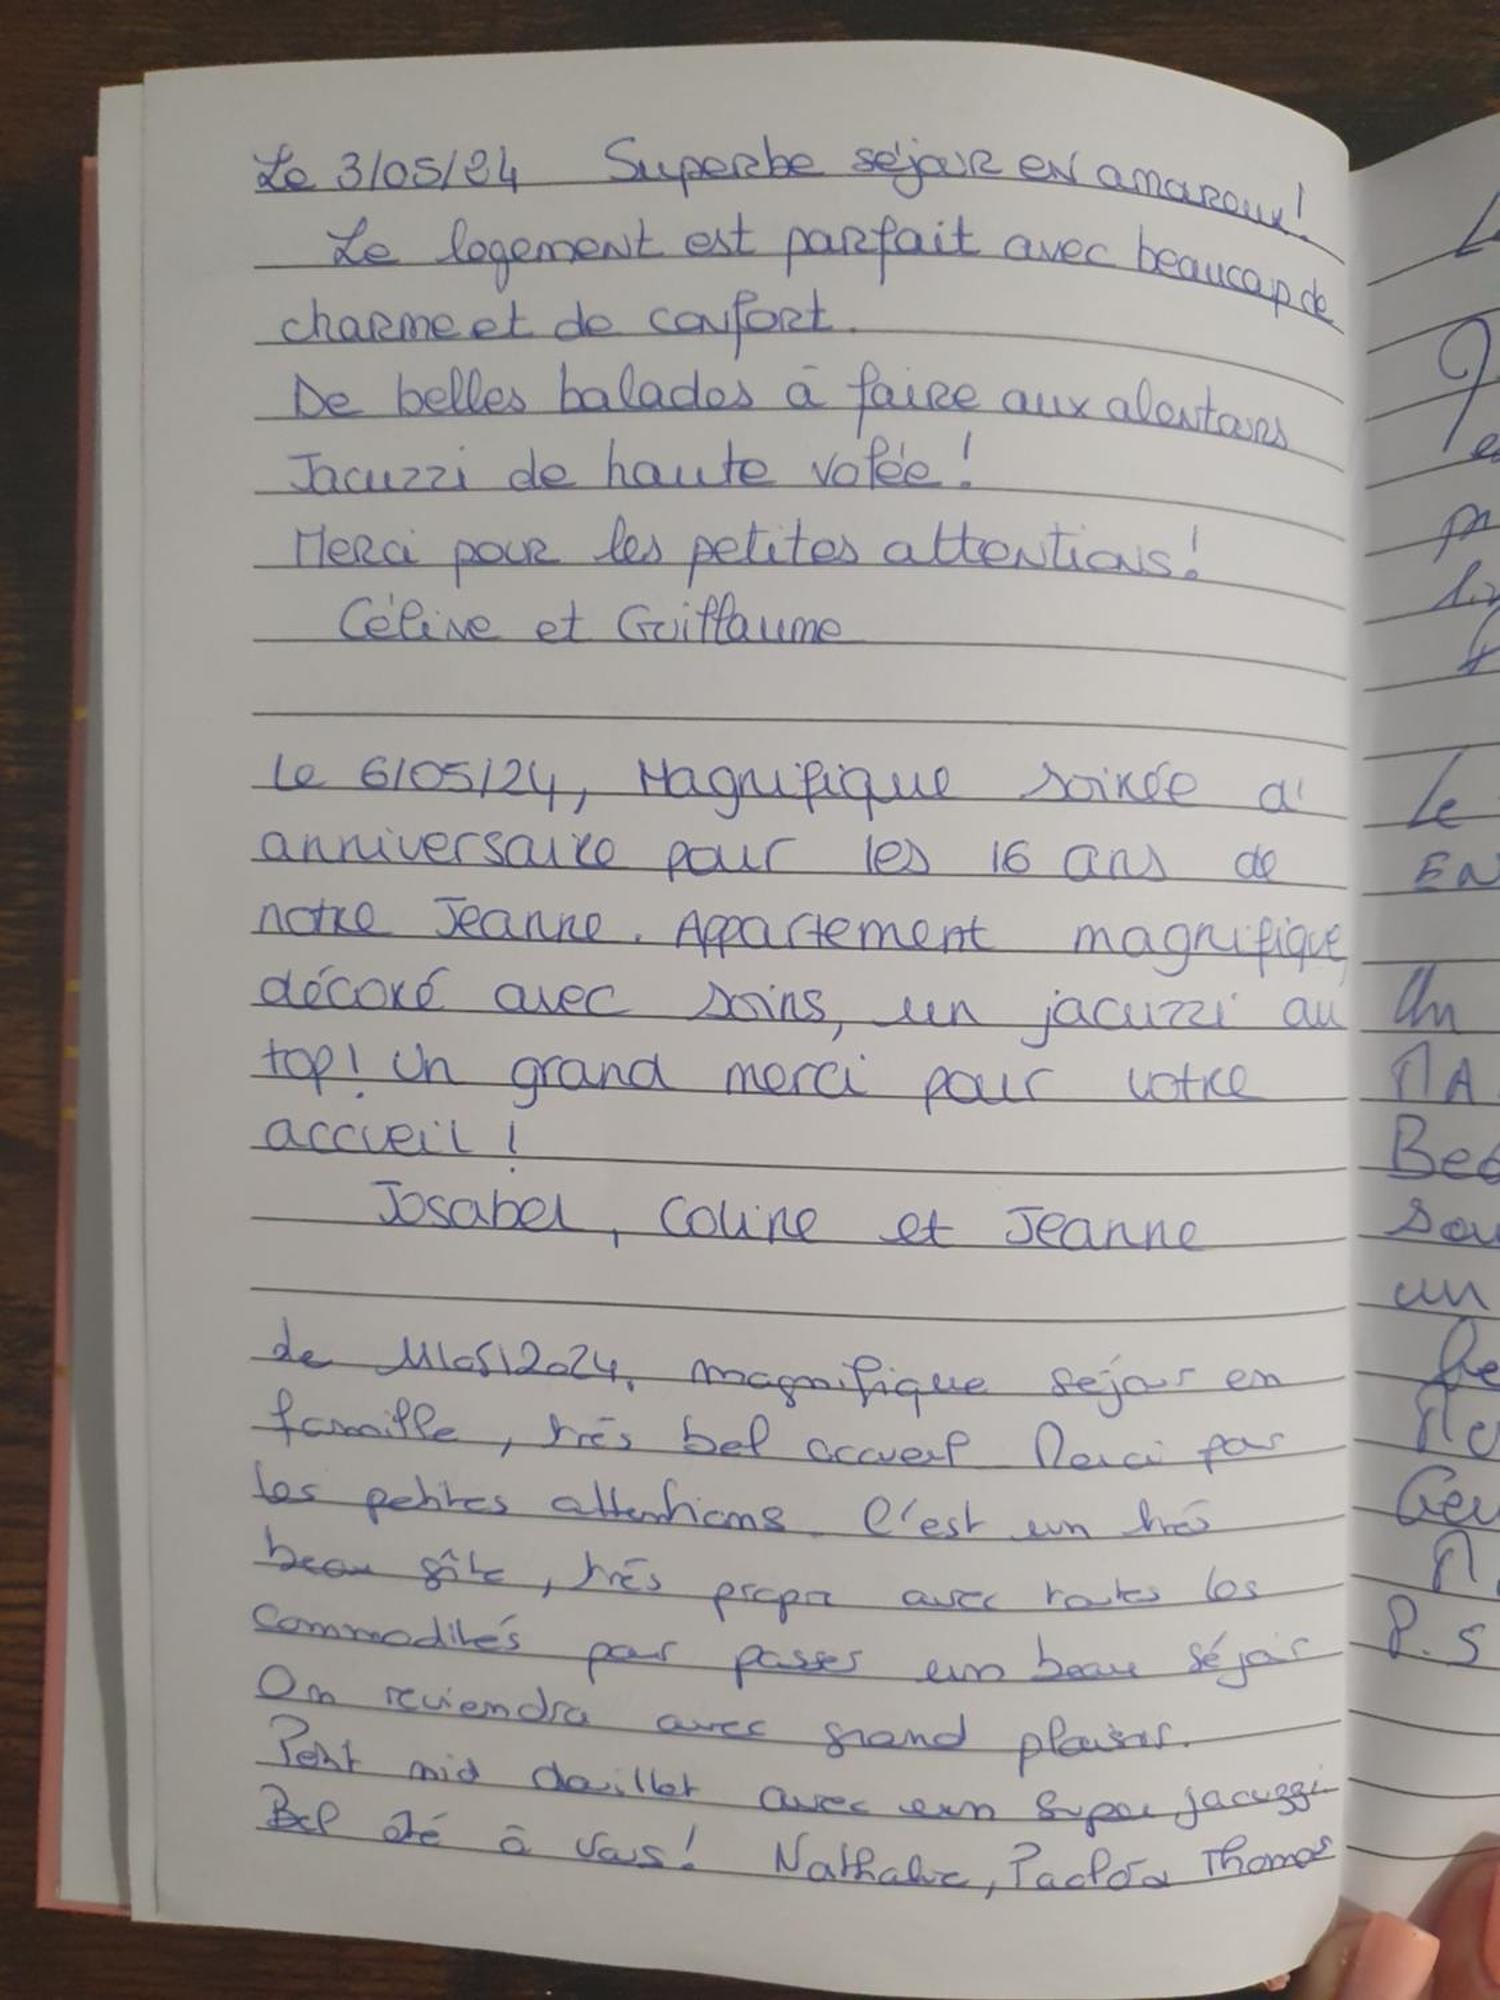 Le 3/05/24 Superbe séjour en amoureux!
Le logement est parfait avec beaucoup de
charme et de confort.
De belles balades à faire aux alentours
Jacuzzi de haute volée!
Merci pour les petites attentions!
Céline et Guillaume
Le 6/05/24, Magnifique soirée d'
anniversaire pour les 16 ans de
notre Jeanne. Appartement magnifique,
décoré avec soins, un jacuzzi au
top! Un grand merci pour votre
accueil!
Josabel, Coline et Jeanne
Le 11/05/2024. magnifique séjour en
famille, très bel accueil Merci pour
les petites attentions. C'est un très
beau gîte, très propre avec toutes les
commodités pour passer un beau séjour
On reviendra avec grand plaisir.
Petit nid douillet avec un super jacuzzi
Bel été à Vous! Nathalie, Thomas
Le
EN
Un
MA
un
P.S